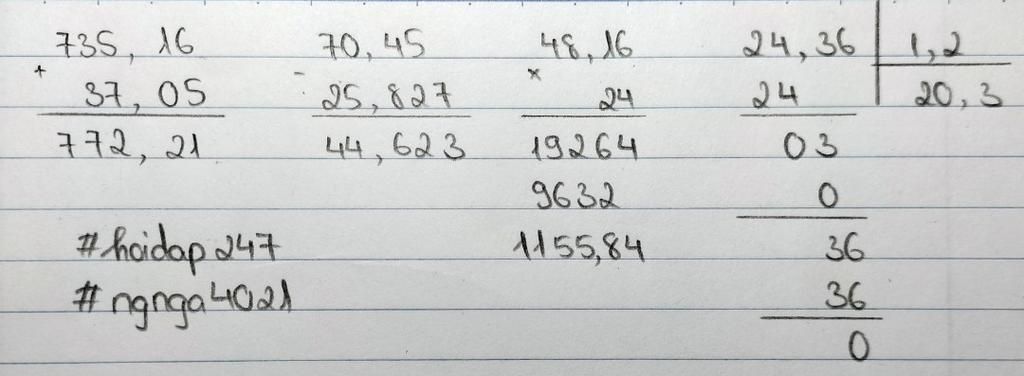 735, 16 70, 45 48, 16 24, 36 1, 2
+ - x
37, 05 25, 827 24 24 20, 3
772, 21 44, 623 19264 03
9632 0
#hoidap247 1155,84 36
#ngnga4021 36
0